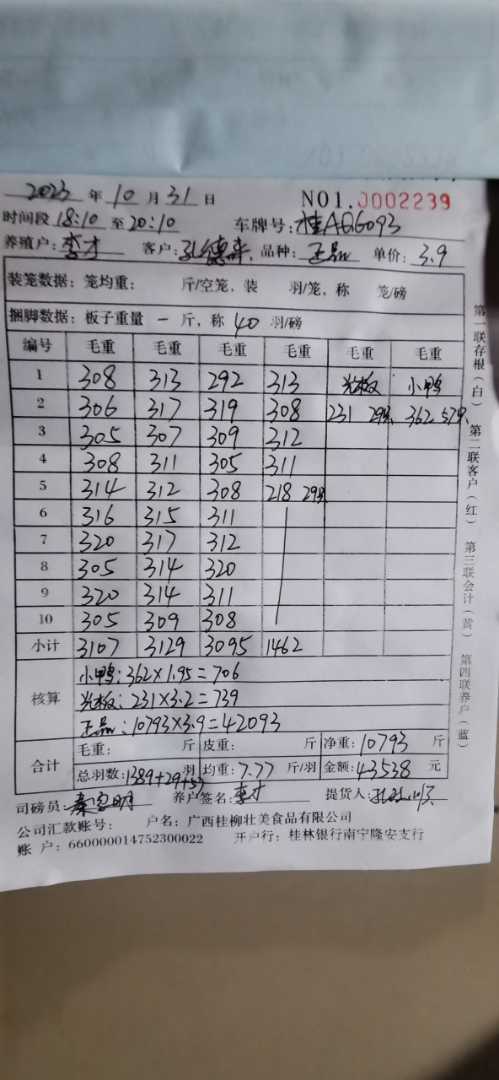 2023 年 10 月 31 日 NO1.0002239
时间段 18:10 至 20:10 车牌号: 桂AQG093
养殖户: 李才 客户: 孔德来. 品种: 正品 单价: 3.9
装笼数据: 笼均重: 斤/空笼, 装 羽/笼, 称 笼/磅
捆脚数据: 板子重量 一 斤, 称 40 羽/磅
编号 毛重 毛重 毛重 毛重 毛重 毛重
1 308 313 292 313 光板 小鸭
2 306 317 319 308 231 29只 362 57只
3 305 307 309 312
4 308 311 305 311
5 314 312 308 218 29只
6 316 315 311
7 320 317 312
8 305 314 320
9 320 314 311
10 305 309 308
小计 3107 3129 3095 1462
核算
小鸭: 362×1.95=706
光板: 231×3.2=739
正品: 10793×3.9=42093
合计
毛重: 斤 皮重: 斤 净重: 10793 斤
总羽数: 1389+29+57 羽 均重: 7.77 斤/羽 金额: 43538 元
司磅员: 养户签名: 李才 提货人:
公司汇款账号: 户名: 广西桂柳壮美食品有限公司
账 户: 660000014752300022 开户行: 桂林银行南宁隆安支行
第一联存根(白) 第二联客户(红) 第三联会计(黄) 第四联养户(蓝)